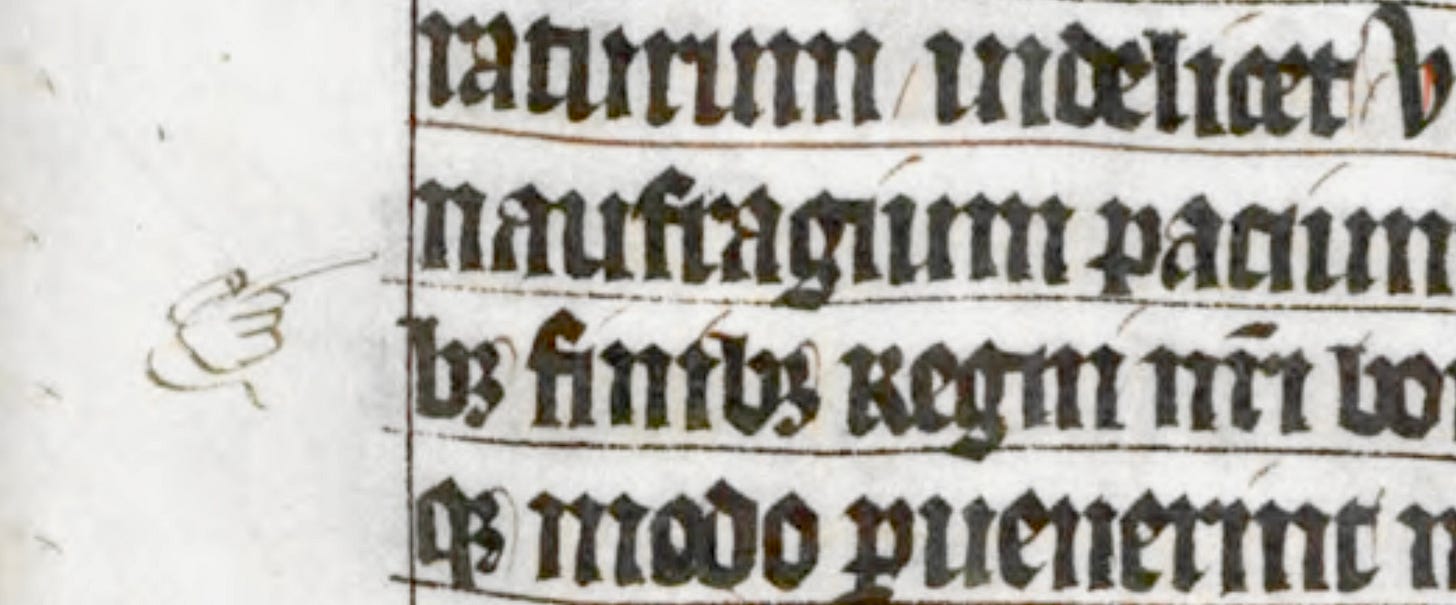 raturum uidelicet V
naufragium pacium
bꝫ finibꝫ Regni nr̄i bo
qꝫ modo ꝑuenerint n